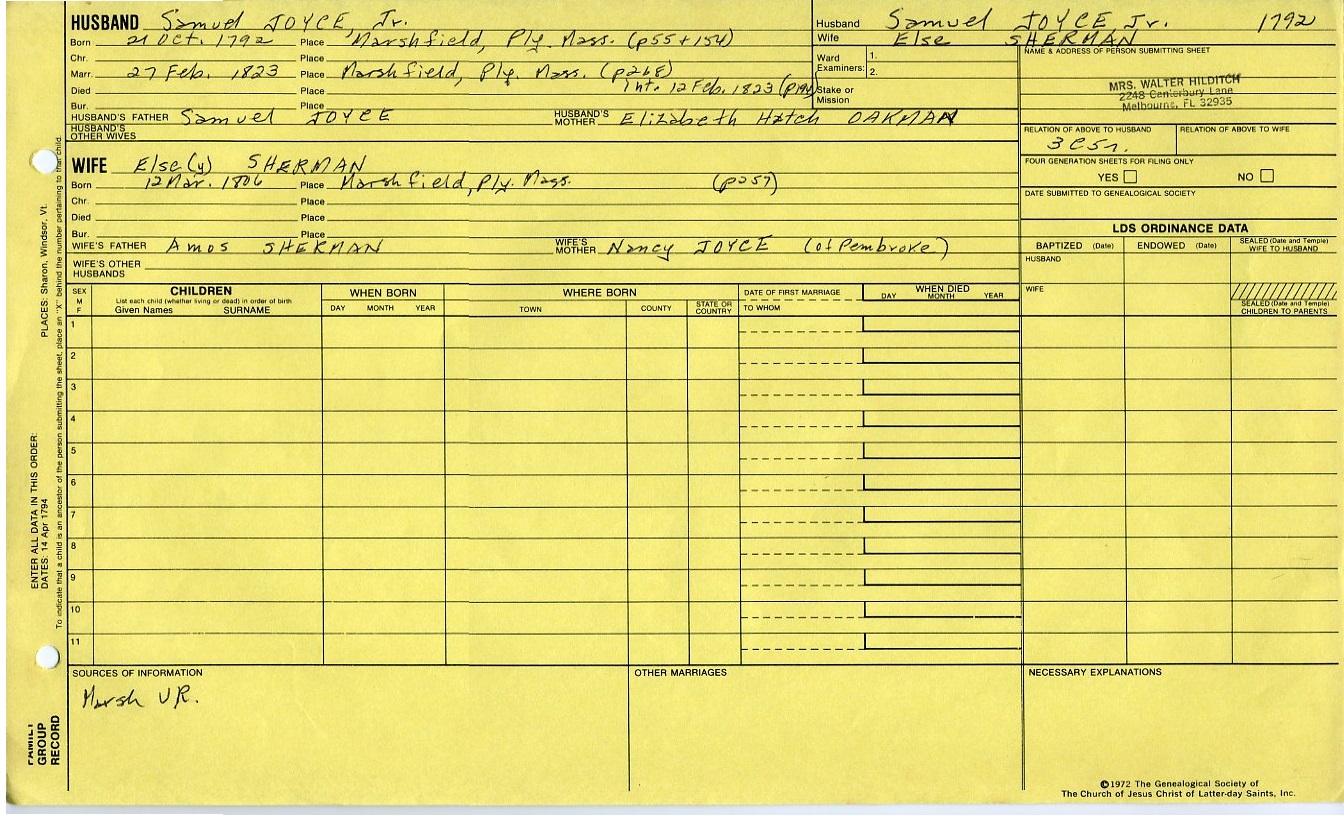 HUSBAND Samuel JOYCE, Jr.
Born 21 Oct. 1792 Place Marshfield, Ply. Mass. (p55+154)
Chr. Place
Marr. 27 Feb. 1823 Place Marshfield, Ply. Mass. (p268)
Died Place Int. 12 Feb. 1823 (p194)
Bur. Place
HUSBAND'S FATHER Samuel JOYCE HUSBAND'S MOTHER Elizabeth Hatch OAKMAN
HUSBAND'S OTHER WIVES
WIFE Else(y) SHERMAN
Born 12 Mar. 1806 Place Marshfield, Ply. Mass. (p257)
Chr. Place
Died Place
Bur. Place
WIFE'S FATHER Amos SHERMAN WIFE'S MOTHER Nancy JOYCE (of Pembroke)
WIFE'S OTHER HUSBANDS
Husband Samuel JOYCE, Jr. 1792
Wife Else SHERMAN
Ward Examiners: 1.
2.
Stake or Mission
NAME & ADDRESS OF PERSON SUBMITTING SHEET
MRS. WALTER HILDITCH
2248 Canterbury Lane
Melbourne, FL 32935
RELATION OF ABOVE TO HUSBAND RELATION OF ABOVE TO WIFE
3C5r.
FOUR GENERATION SHEETS FOR FILING ONLY
YES NO
DATE SUBMITTED TO GENEALOGICAL SOCIETY
LDS ORDINANCE DATA
BAPTIZED (Date) ENDOWED (Date) SEALED (Date and Temple) WIFE TO HUSBAND
HUSBAND
WIFE
SEALED (Date and Temple) CHILDREN TO PARENTS
SEX M F
CHILDREN
List each child (whether living or dead) in order of birth
Given Names SURNAME
WHEN BORN
DAY MONTH YEAR
WHERE BORN
TOWN COUNTY STATE OR COUNTRY
DATE OF FIRST MARRIAGE
TO WHOM
WHEN DIED
DAY MONTH YEAR
1
2
3
4
5
6
7
8
9
10
11
SOURCES OF INFORMATION
Marsh VR.
OTHER MARRIAGES
NECESSARY EXPLANATIONS
©1972 The Genealogical Society of
The Church of Jesus Christ of Latter-day Saints, Inc.
FAMILY GROUP RECORD
ENTER ALL DATA IN THIS ORDER:
DATES: 14 Apr 1794
PLACES: Sharon, Windsor, Vt.
To indicate that a child is an ancestor of the person submitting the sheet, place an "X" behind the number pertaining to that child.